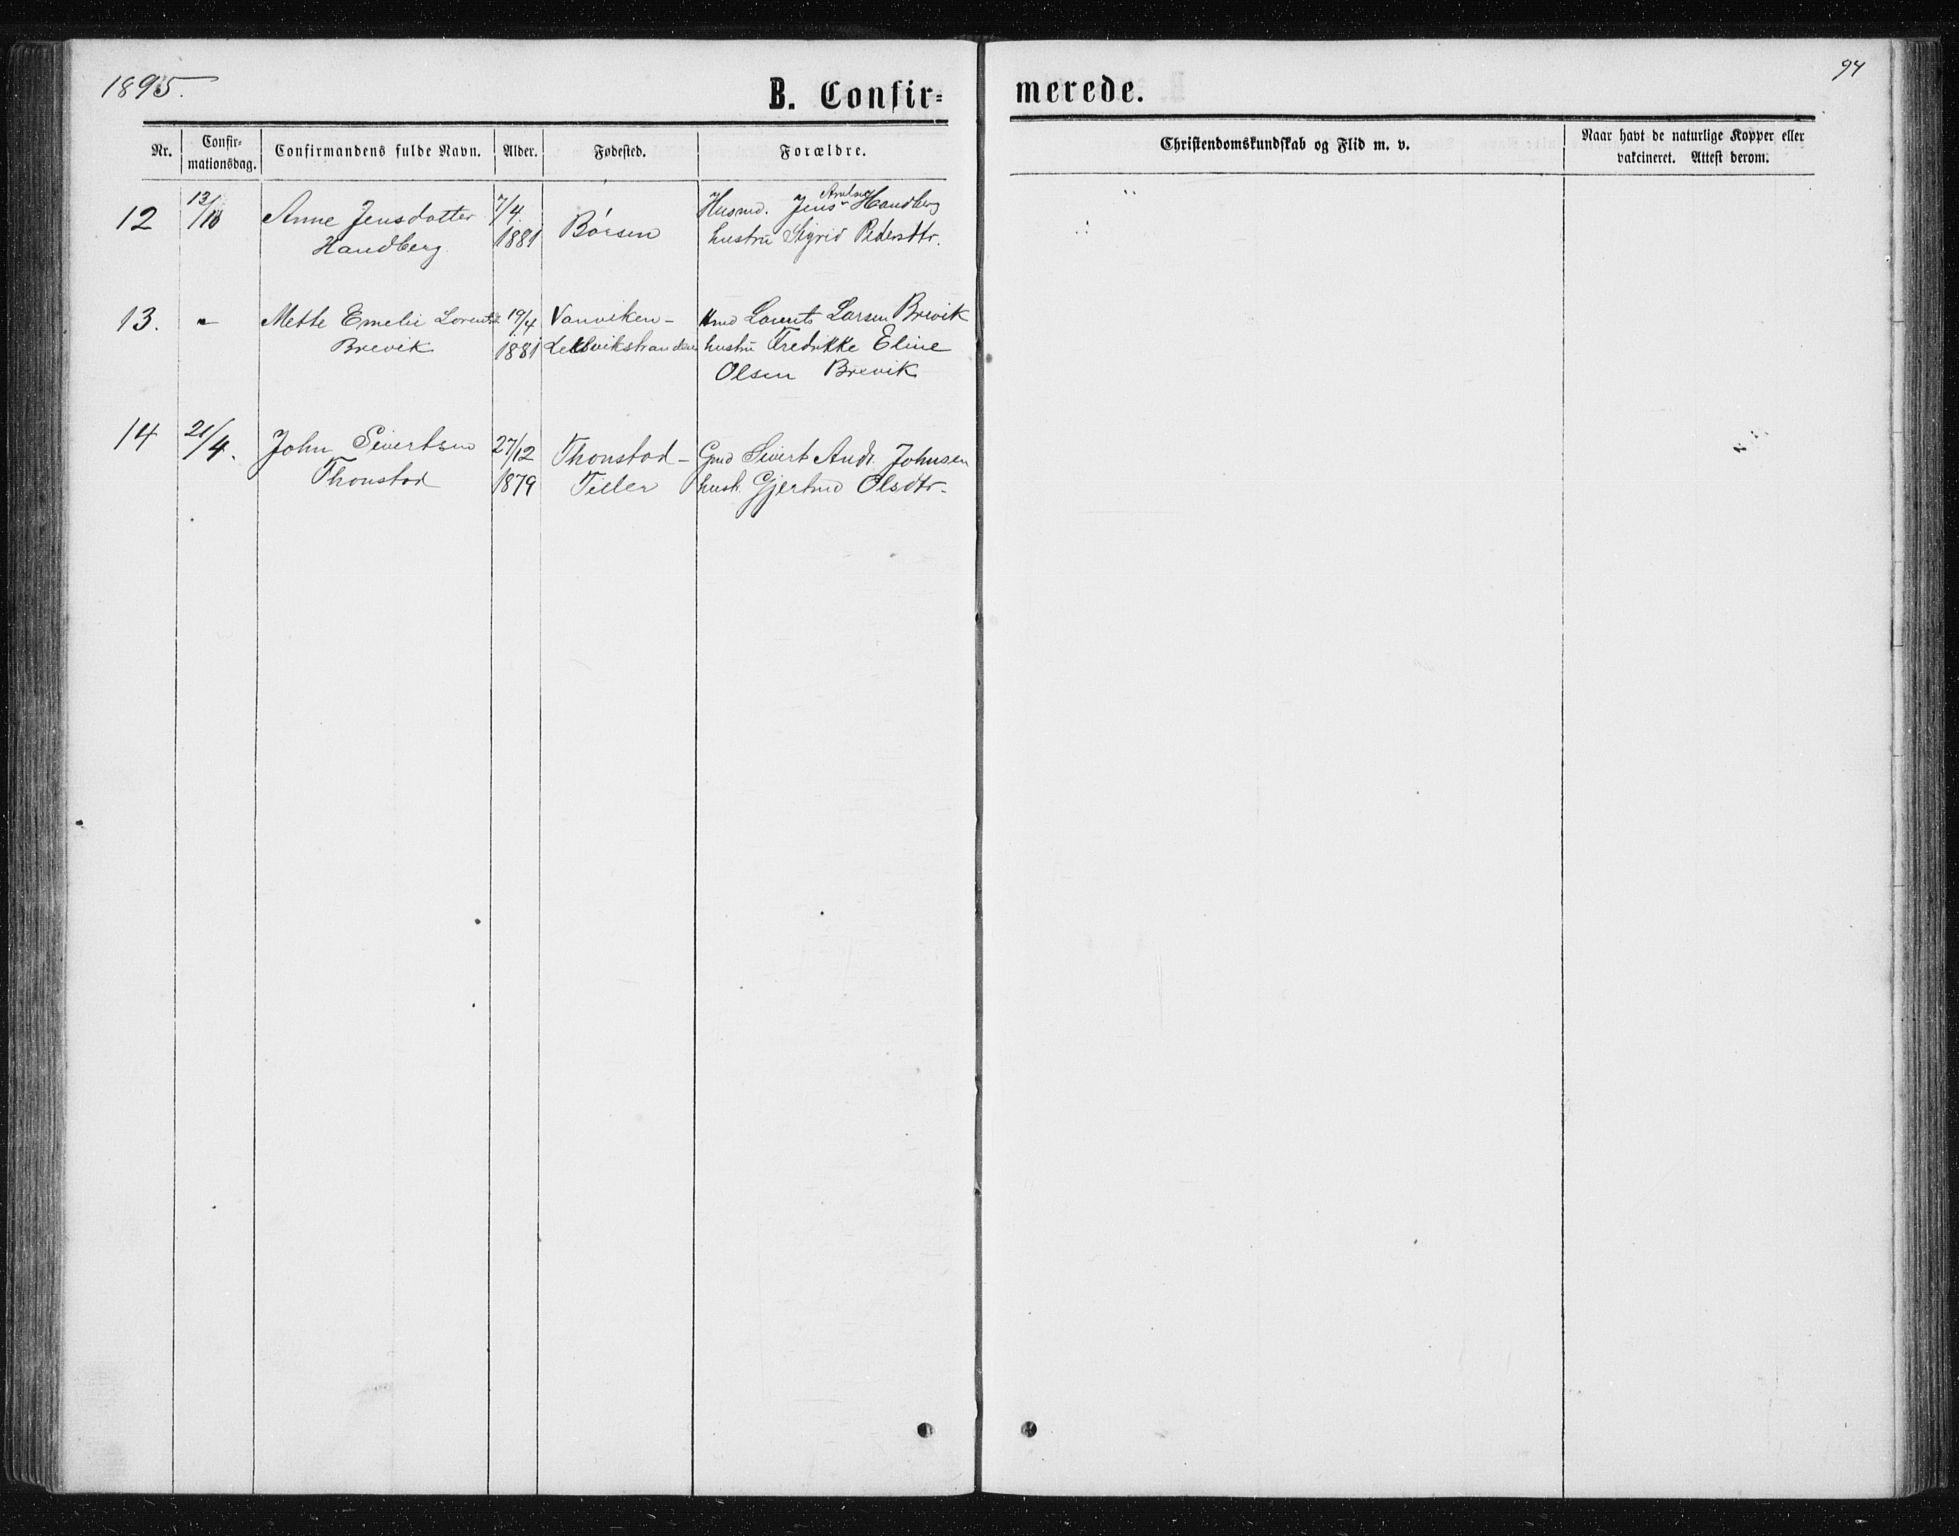 1895.
94
B. Confir=
merede.
Nr.
Confir-
mationsdag.
Confirmandens fulde Navn.
Alder.
Fødested.
Forældre.
Christendomskundskab og Flid m. v.
Naar havt de naturlige Kopper eller
vakcineret. Attest derom.
12
13/10
Anne Jensdatter
Handberg.
7/4.
1881
Børsen
Husmd. Jens Handberg
hustru Sigrid Pedersdtr.
13.
"
Mette Emelie
Brevik
19/4
1881
Vanviken -
Leksvikstranden
Lorents Larsen Brevik
hustru Fredrikke Eline
Olsen Brevik
14
21/4.
John Sivertsen
Thonstad
27/12
1879
Thonstad -
Tiller
Gmd Sivert Andr. Johnsen
hust. Gjertrud Olsdtr.